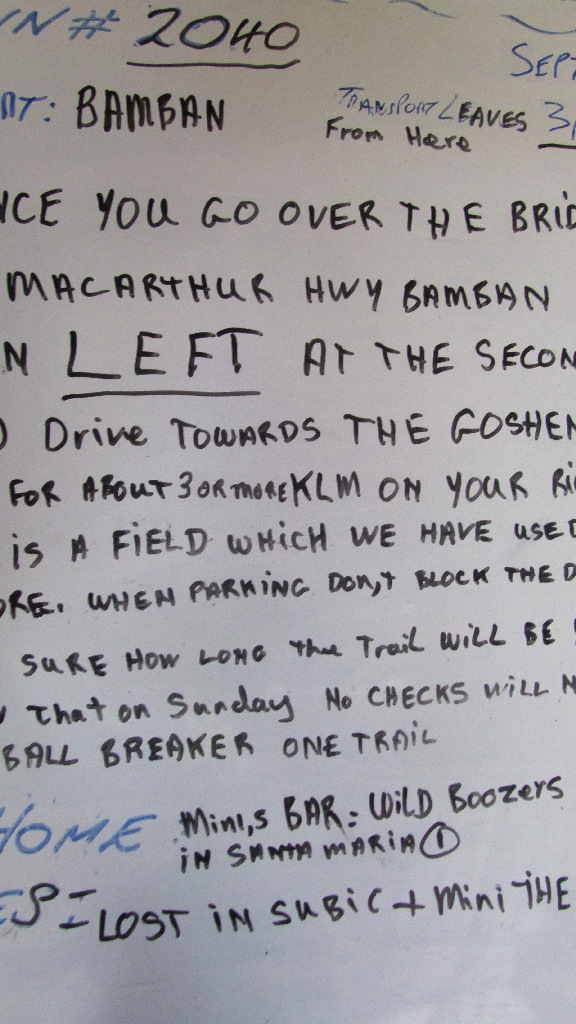 N # 2040
SEPT
AT: BAMBAN
TRANSPORT LEAVES 3
From Here
NCE YOU GO OVER THE BRID
MACARTHUR HWY BAMBAN
N LEFT AT THE SECON
D Drive TOWARDS THE GOSHEN
FOR ABOUT 3 OR more KLM ON YOUR RI
is A FiELD WHICH WE HAVE USED
ORE. WHEN PARKING DON,T BLOCK THE D
SURE HOW LONG the Trail WiLL BE
That on Sunday No CHECKS WiLL N
BALL BREAKER ONE TRAIL
HOME Mini,s BAR: WiLD BOOZERS
iN SANTA MARiA ①
ES :- LOST iN SUBiC + Mini THE